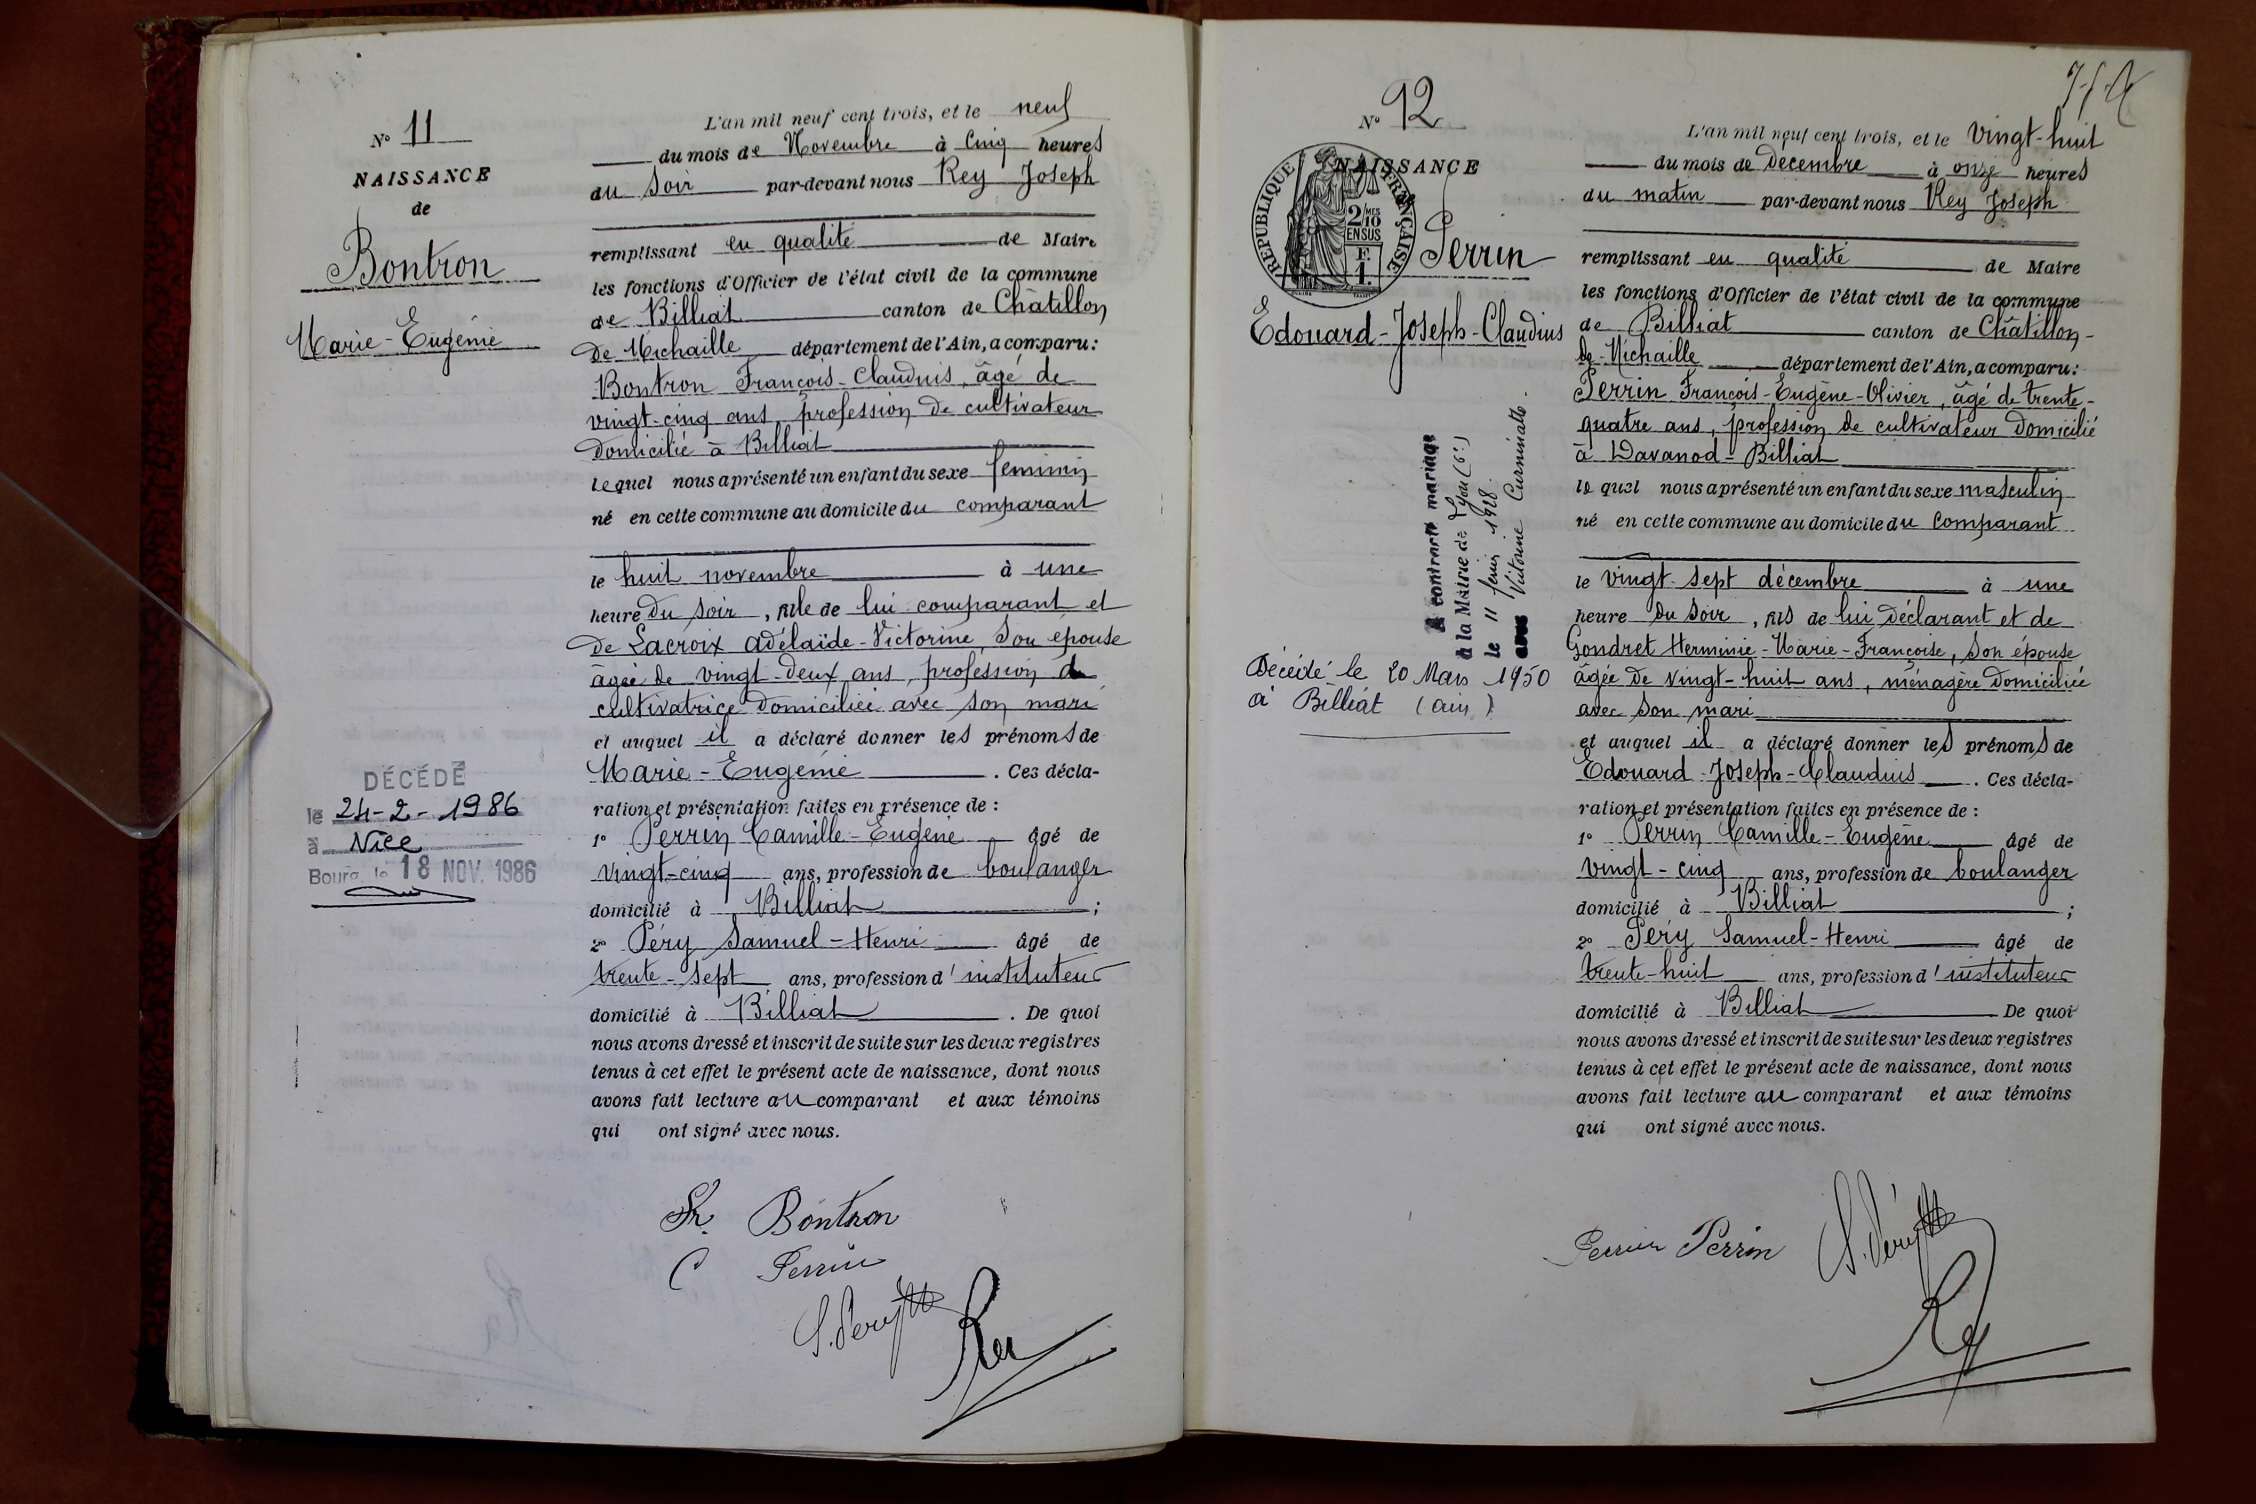 N° 11
NAISSANCE
de
Bontron
Marie-Eugénie
DÉCÉDÉ
le 24-2-1986
à Nice
Bourg, le 18 NOV. 1986
L'an mil neuf cent trois, et le neuf
du mois de Novembre à cinq heures
du soir par-devant nous Rey Joseph
remplissant en qualité de Maire
les fonctions d'Officier de l'état civil de la commune
de Billiat canton de Châtillon
de Michaille département de l'Ain, a comparu:
Bontron François-Claudius, âgé de
vingt-cinq ans profession de cultivateur
domicilié à Billiat
lequel nous a présenté un enfant du sexe féminin
né en cette commune au domicile du comparant
le huit novembre à une
heure du soir, fille de lui comparant et
de Lacroix Adélaïde-Victorine, son épouse
âgée de vingt-deux ans, profession de
cultivatrice domiciliée avec son mari
et auquel il a déclaré donner les prénoms de
Marie-Eugénie. Ces décla-
ration et présentation faites en présence de :
1° Perrin Camille-Eugène âgé de
vingt-cinq ans, profession de boulanger
domicilié à Billiat ;
2° Péry Samuel-Henri âgé de
trente-sept ans, profession d'instituteur
domicilié à Billiat. De quoi
nous avons dressé et inscrit de suite sur les deux registres
tenus à cet effet le présent acte de naissance, dont nous
avons fait lecture au comparant et aux témoins
qui ont signé avec nous.
Fr. Bontron
C Perrin
S. Péry
Rey
N° 12
NAISSANCE
RÉPUBLIQUE FRANÇAISE
2/10 MES
EN SUS
F.
1.
Perrin
Edouard-Joseph-Claudius
A contracté mariage
à la Mairie de Lyon (6e)
le 11 1928.
avec Victorine
Décédé le 20 Mars 1950
à Billiat (Ain)
L'an mil neuf cent trois, et le vingt-huit
du mois de Décembre à onze heures
du matin par-devant nous Rey Joseph
remplissant en qualité de Maire
les fonctions d'Officier de l'état civil de la commune
de Billiat canton de Châtillon-
de-Michaille département de l'Ain, a comparu:
Perrin François-Eugène-Olivier, âgé de trente-
quatre ans, profession de cultivateur domicilié
à Davanod-Billiat
lequel nous a présenté un enfant du sexe masculin
né en cette commune au domicile du comparant
le vingt-sept décembre à une
heure du soir, fils de lui déclarant et de
Gondret Herminie-Marie-Françoise, son épouse
âgée de vingt-huit ans, ménagère domiciliée
avec son mari
et auquel il a déclaré donner les prénoms de
Edouard-Joseph-Claudius. Ces décla-
ration et présentation faites en présence de :
1° Perrin Camille-Eugène âgé de
vingt-cinq ans, profession de boulanger
domicilié à Billiat ;
2° Péry Samuel-Henri âgé de
trente-huit ans, profession d'instituteur
domicilié à Billiat De quoi
nous avons dressé et inscrit de suite sur les deux registres
tenus à cet effet le présent acte de naissance, dont nous
avons fait lecture au comparant et aux témoins
qui ont signé avec nous.
Perrin Perrin S. Péry
Rey